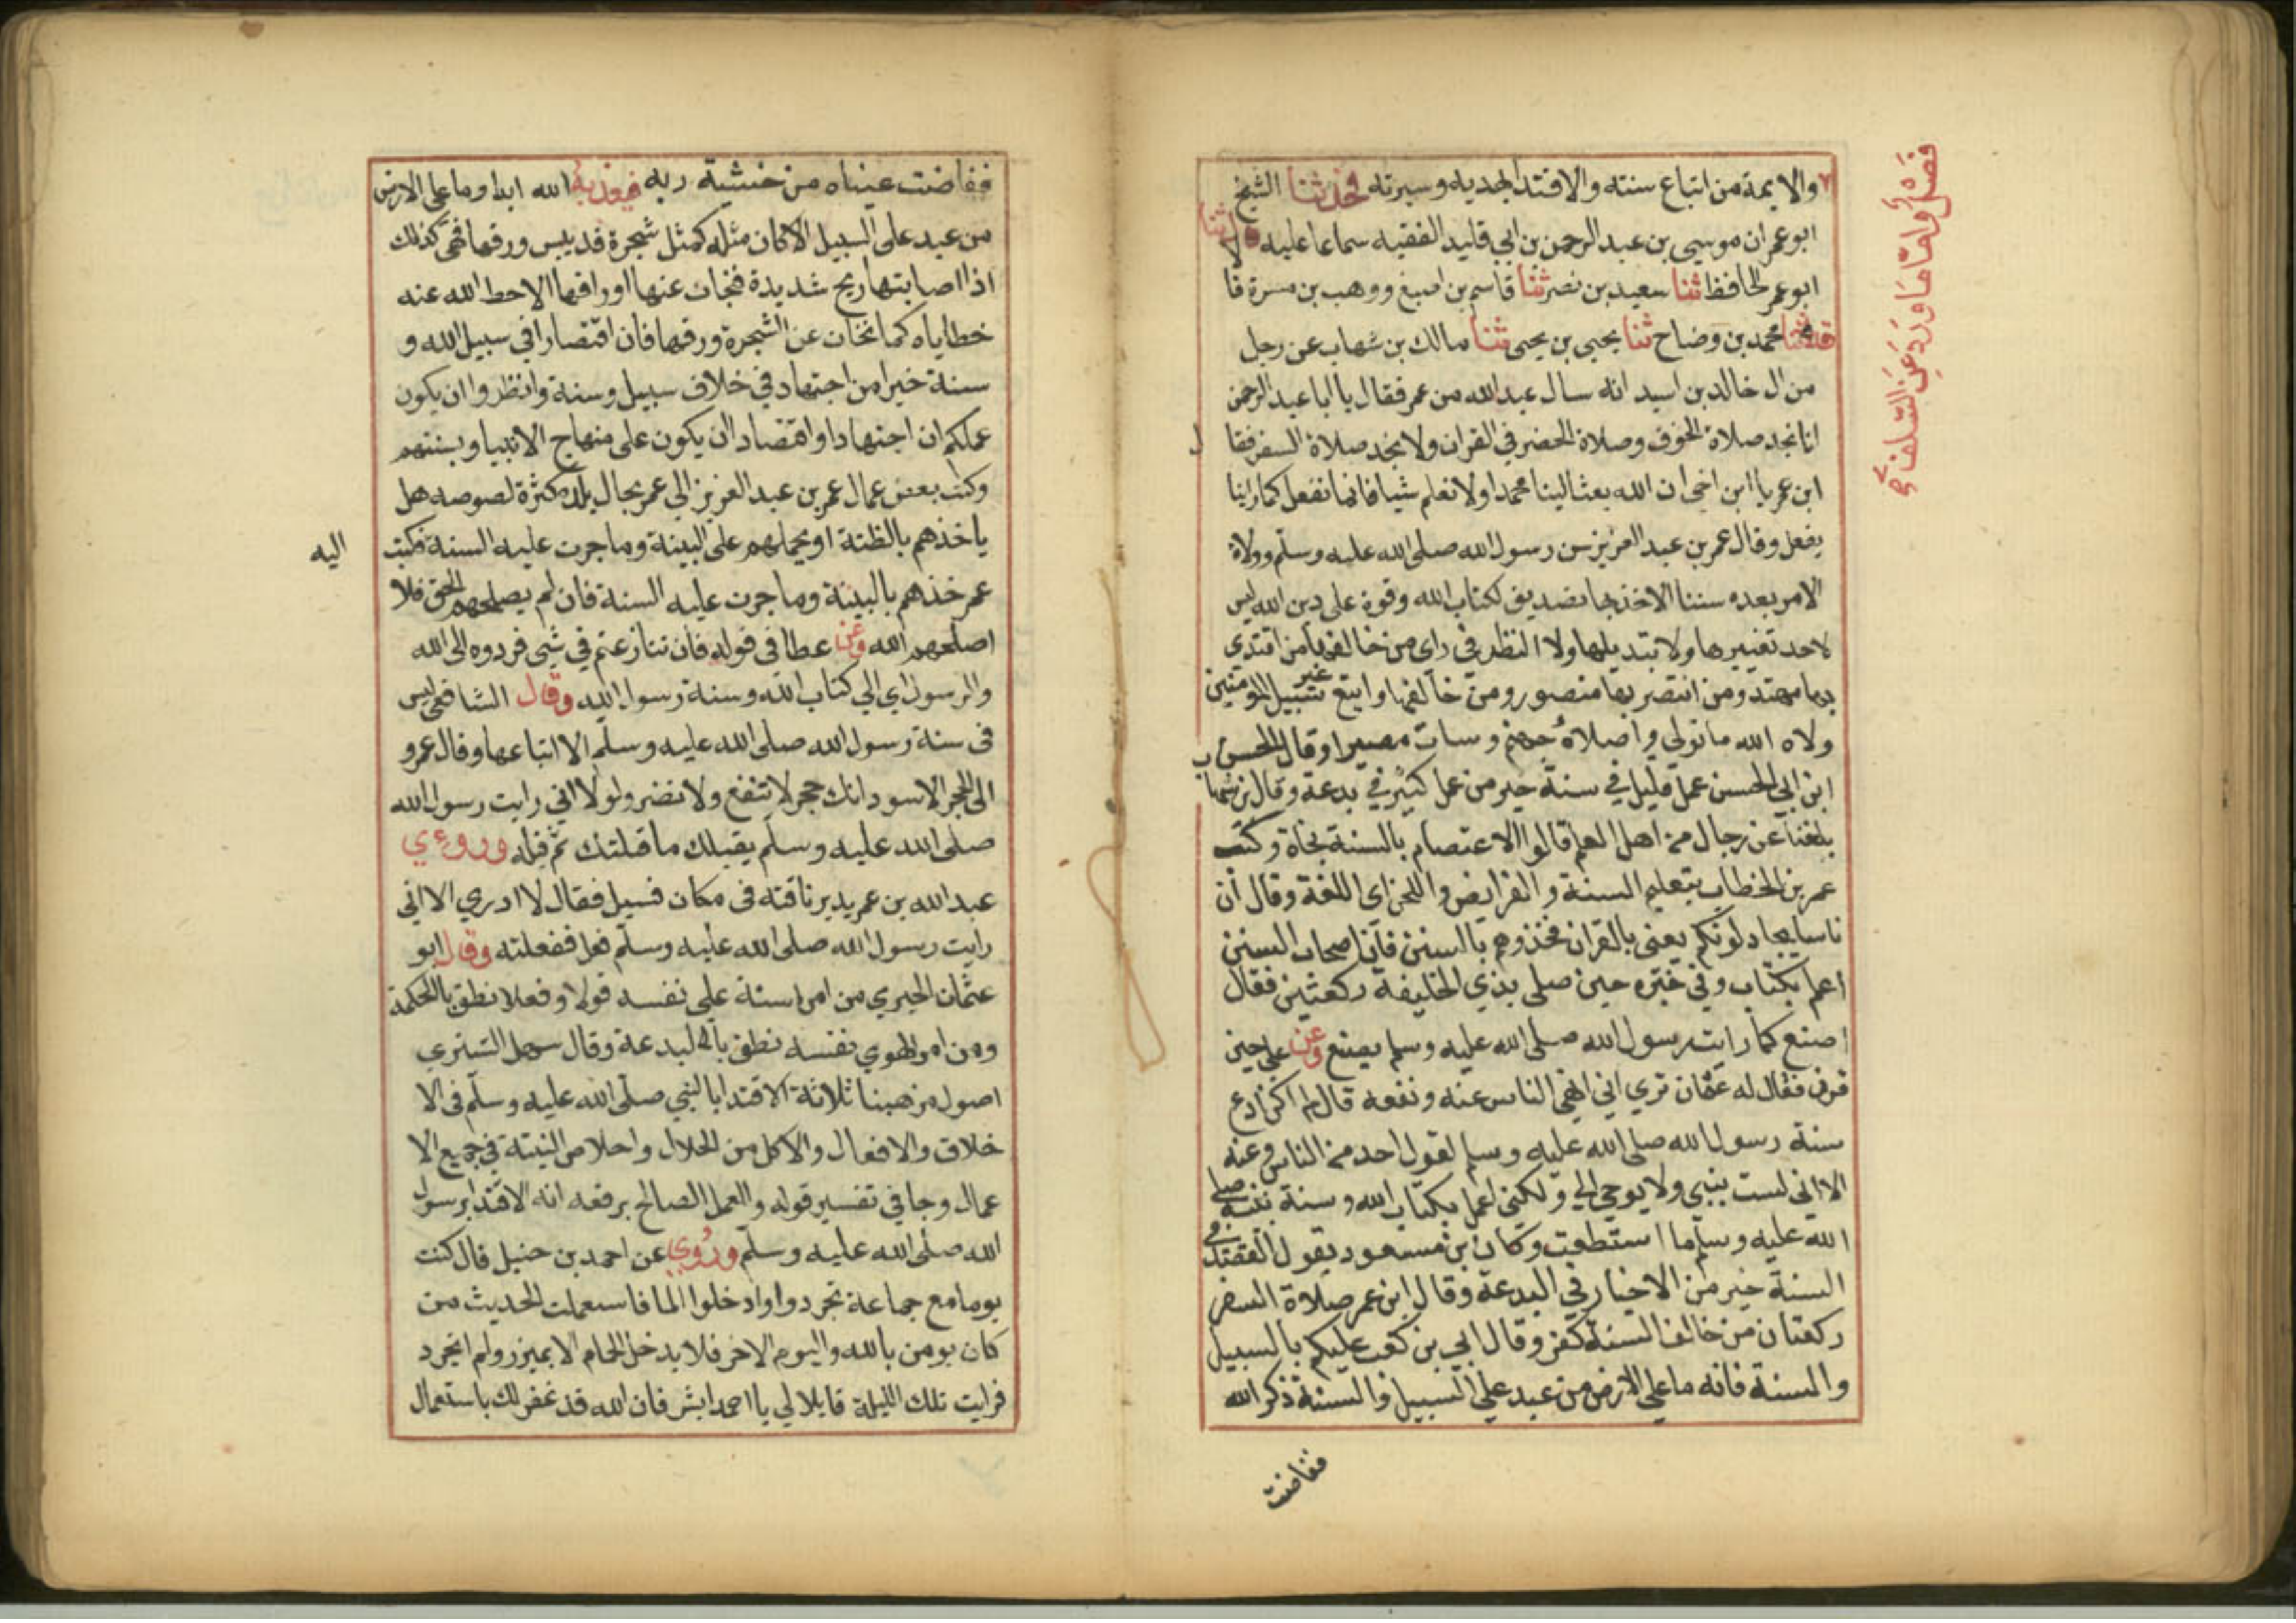 فصل واما ما ورد عن السلف في
والايمة من اتباع سنته والاقتدا بهديه وسيرته فحدثنا الشيخ
ابو عمران موسى بن عبد الرحمن بن ابي تليد الفقيه سماعا عليه قال ثنا
ابو عمر الحافظ ثنا سعيد بن نصر ثنا قاسم بن اصبغ ووهب بن مسرة قا
ثنا محمد بن وضاح ثنا يحيى بن يحيى ثنا مالك بن شهاب عن رجل
من ال خالد بن اسيد انه سال عبد الله من عمر فقال يا ابا عبد الرحمن
انا نجد صلاة الخوف وصلاة الحضر في القران ولا نجد صلاة السفر فقا ل
ابن عمر يا ابن اخي ان الله بعث الينا محمدا ولا نعلم شيا فانما نفعل كما راينا
يفعل وقال عمر بن عبد العزيز سن رسول الله صلى الله عليه وسلم وولاة
الامر بعده سننا الاخذ بها تصديق لكتاب الله وقوة على دين الله ليس
لاحد تغييرها ولا تبديلها ولا النظر في راي من خالفها من اقتدى
بها مهتد ومن انتصر بها منصور ومن خالفها واتبع غير سبيل المومنين
ولاه الله ما تولى واصلاه جهنم وسات مصيرا وقال الحسن
ابن ابي الحسن عمل قليل في سنة خير من عمل كثير في بدعة وقال بن شها ب
بلغنا عن رجال من اهل العلم قالوا الاعتصام بالسنة نجاة وكتب
عمر بن الخطاب بتعليم السنة والفرايض واللحن اى اللغة وقال ان
ناسا يجادلونكم يعني بالقران فخذوهم بالسنن فان اصحاب السنن
اعلم بكتاب وفي خبره حين صلى بذي الحليفة ركعتين فقال
اصنع كما رايت رسول الله صلى الله عليه وسلم يصنع وعن علي حين
قرن فقال له عثمان ترى اني انهي الناس عنه وتفعه قال لم اكن ادع
سنة رسول الله صلى الله عليه وسلم لقول احد من الناس وعنه
الا اني لست بنبي ولا يوحي الي ولكني اعمل بكتاب الله وسنة نبيه صلى
الله عليه وسلم ما استطعت وكان بن مسعود يقول القصد في
السنة خير من الاجتهاد في البدعة وقال ابن عمر صلاة السفر
ركعتان من خالف السنة كفر وقال ابي بن كعب عليكم بالسبيل
والسنة فانه ما على الارض من عبد على السبيل والسنة ذكر الله
ففاضت
ففاضت عيناه من خشية ربه فيعذبه الله ابدا وما على الارض
من عبد على السبيل الا كان مثله كمثل شجرة قد يبس ورقها فهي كذلك
اذا اصابتها ريح شديدة فتحات عنها اوراقها الا حط الله عنه
خطاياه كما تحات عن الشجرة ورقها فان اقتصارا في سبيل الله و
سنة خيرا من اجتهاد في خلاف سبيل وسنة وانظروا ان يكون
عملكم ان اجتهادا او اقتصادا ان يكون على منهاج الانبيا وسنتهم
وكتب بعض عمال عمر بن عبد العزيز الي عمر بحال بلده وكثرة لصوصه هل
ياخذهم بالظنة او يحملهم على البينة وما جرت عليه السنة فكتب اليه
عمر خذهم بالبينة وما جرت عليه السنة فان لم يصلحهم الحق فلا
اصلحهم الله وعن عطا في قوله فان تنازعتم في شي فردوه الى الله
والرسول اي الي كتاب الله وسنة رسول الله وقال الشافعي ليس
في سنة رسول الله صلى الله عليه وسلم الا اتباعها وقال عمر و
الى الحجر الاسود انك حجر لا تنفع ولا تضر ولولا اني رايت رسول الله
صلى الله عليه وسلم يقبلك ما قبلتك ثم قبله وروءي
عبد الله بن عمر يدير ناقته في مكان فسيل فقال لا ادري الا اني
رايت رسول الله صلى الله عليه وسلم فعل ففعلته وقال ابو
عثمان الحيري من امر السنة على نفسه قولا وفعلا نطق بالحكمة
ومن امر الهوي نفسه نطق بالبدعة وقال سهل التستري
اصول مذهبنا ثلاثة الاقتدا بالنبي صلى الله عليه وسلم في الا
خلاق والافعال والاكل من الحلال واخلاص النية في جميع الا
عمال وجا في تفسير قوله والعمل الصالح يرفعه انه الاقتدا برسول
الله صلى الله عليه وسلم وروي عن احمد بن حنبل قال كنت
يوما مع جماعة تجردوا وادخلوا الما فاستعملت الحديث من
كان يومن بالله واليوم الاخر فلا يدخل الحمام الا بميزر ولم اتجرد
فرايت تلك الليلة قايلا لي يا احمد ابشر فان الله قد غفر لك باستعمال